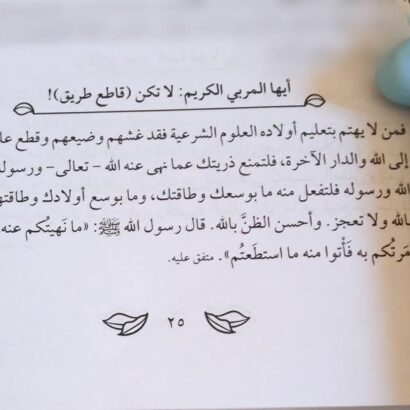 أيها المربي الكريم: لا تكن (قاطع طريق)!
فمن لا يهتم بتعليم أولاده العلوم الشرعية فقد غشهم وضيعهم وقطع
إلى الله والدار الآخرة، فلتمنع ذريتك عما نهى عنه الله - تعالى - ورسول
الله ورسوله فلتفعل منه ما بوسعك وطاقتك، وما بوسع أولادك وطاقته
بالله ولا تعجز. وأحسن الظنَّ بالله. قال رسول الله ﷺ: «ما نَهيتُكم عنه
مَرتُكم به فَأْتوا منه ما استطَعتُم». متفق عليه.
٢٥